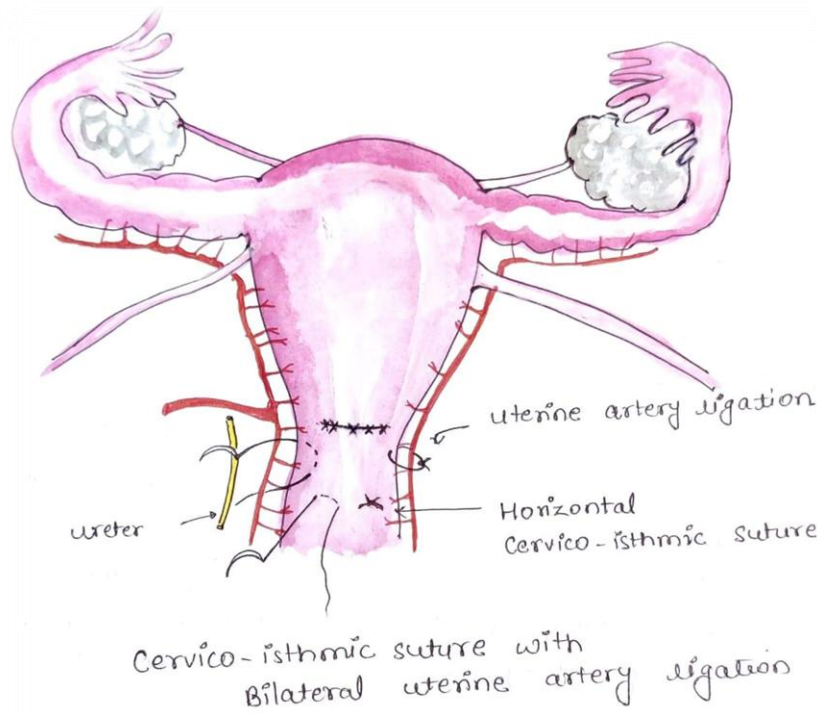 uterine artery ligation
ureter
Horizontal
Cervico-isthmic suture
Cervico-isthmic suture with
Bilateral uterine artery ligation